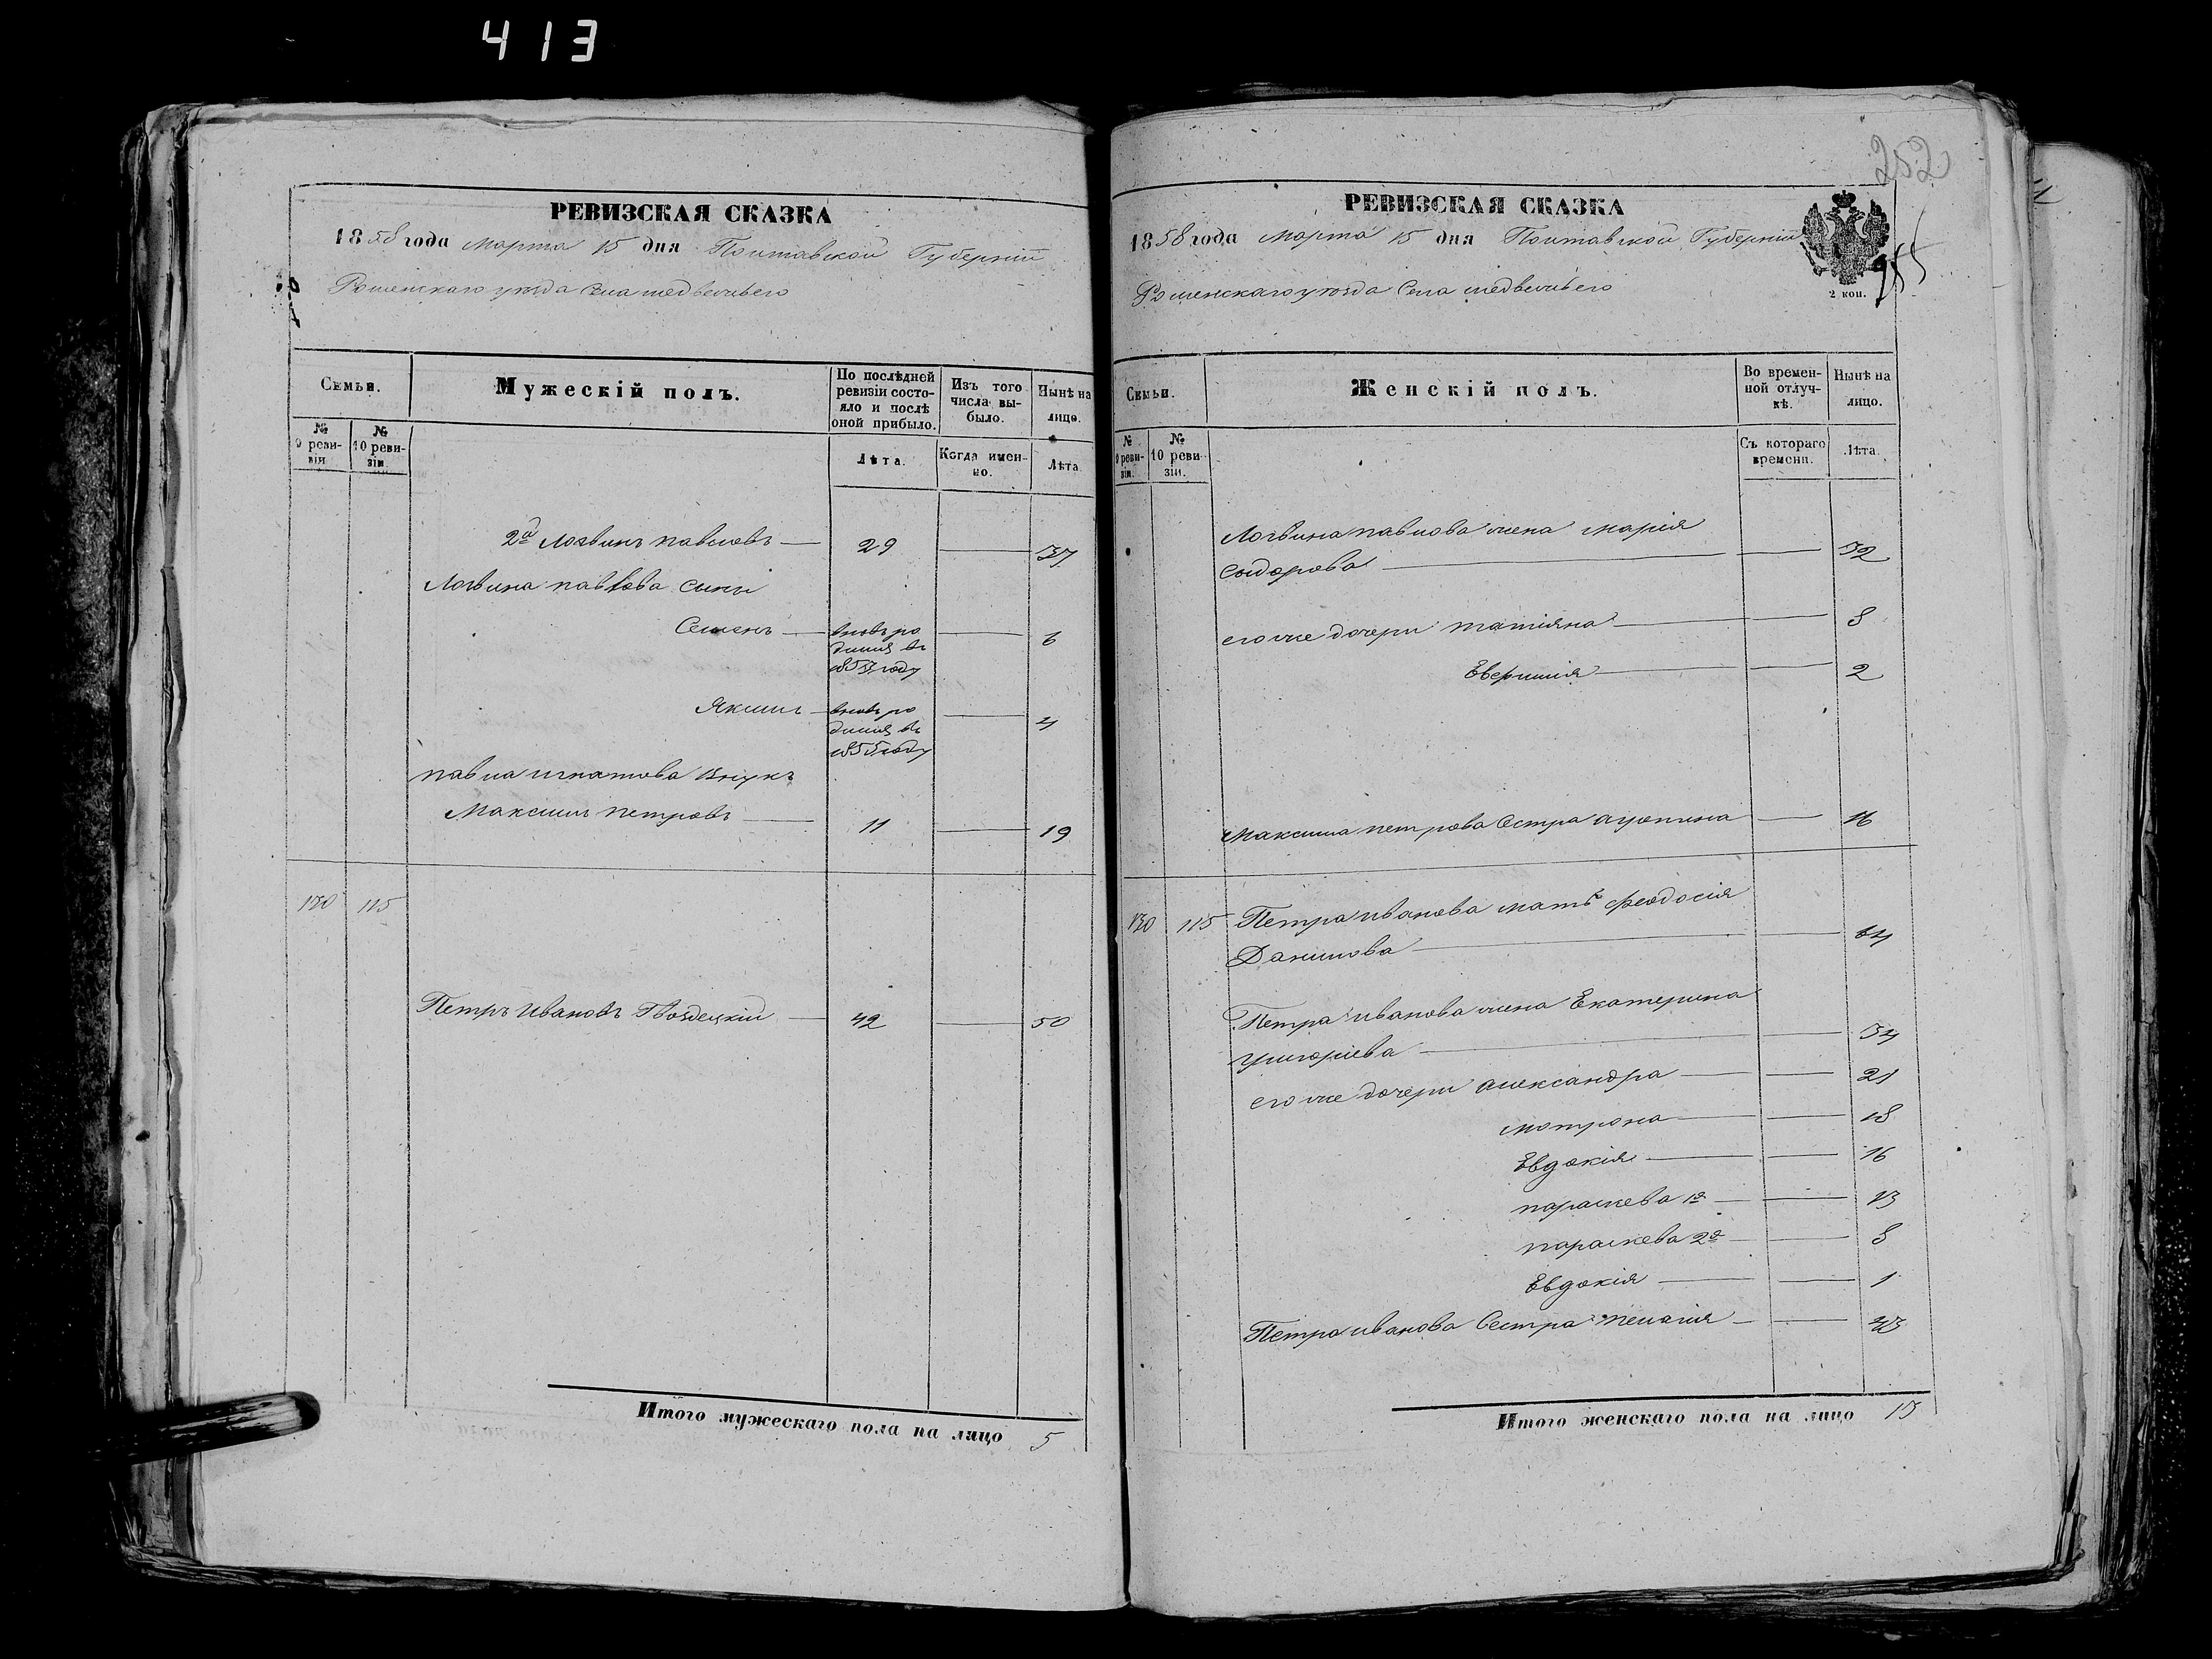 413
РЕВИЗСКАЯ СКАЗКА
1858 года Марта 15 дня Полтавской Губерніи
Роменскаго уезда Села Медвежьего
Семьи.
Мужескій полъ.
По послѣдней ревизіи состо-
яло и послѣ
оной прибыло.
Изъ того
числа вы-
было.
Нынѣ на
лицо.
№
9 реви-
зіи
№
10 реви-
зіи.
Лѣта.
Когда имен-
но.
Лѣта
2й Логвинъ павловъ 29 37
Логвина павлова сыны
Семенъ вновь ро 6
дился въ
1853 году
Якимъ вновь ро 4
дился въ
1855 году
павла игнатова внукъ
Максимъ петровъ 11 19
130 115
Петръ Ивановъ Гвоздецкій 42 50
Итого мужескаго пола на лицо 5
252
РЕВИЗСКАЯ СКАЗКА
1858 года Марта 15 дня Полтавской Губерніи
Роменскаго уезда Села Медвежьего
2 коп.
Семьи.
Женскій полъ.
Во времен-
ной отлуч-
кѣ.
Нынѣ на
лицо.
№
9 реви-
зіи.
№
10 реви-
зіи.
Съ котораго
времени.
Лѣта.
Логвина павлова жена марія
сидорова 32
его же дочери татіяна 8
2
Максима петрова Сестра агрепина 16
130 115 Петра иванова мать феодосія
Данилова 64
Петра иванова жена Екатерина
григоріева 34
его же дочери александра 21
мотрона 18
Евдокія 16
параскева 1я 13
параскева 2я 8
Евдокія 1
Петра иванова Сестра пелагія 43
Итого женскаго пола на лицо 13